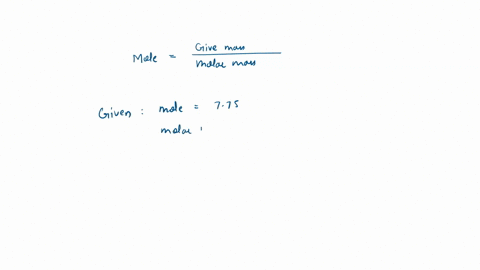 Mole = Give mass / molar mass
Given : mole = 7.75
molar